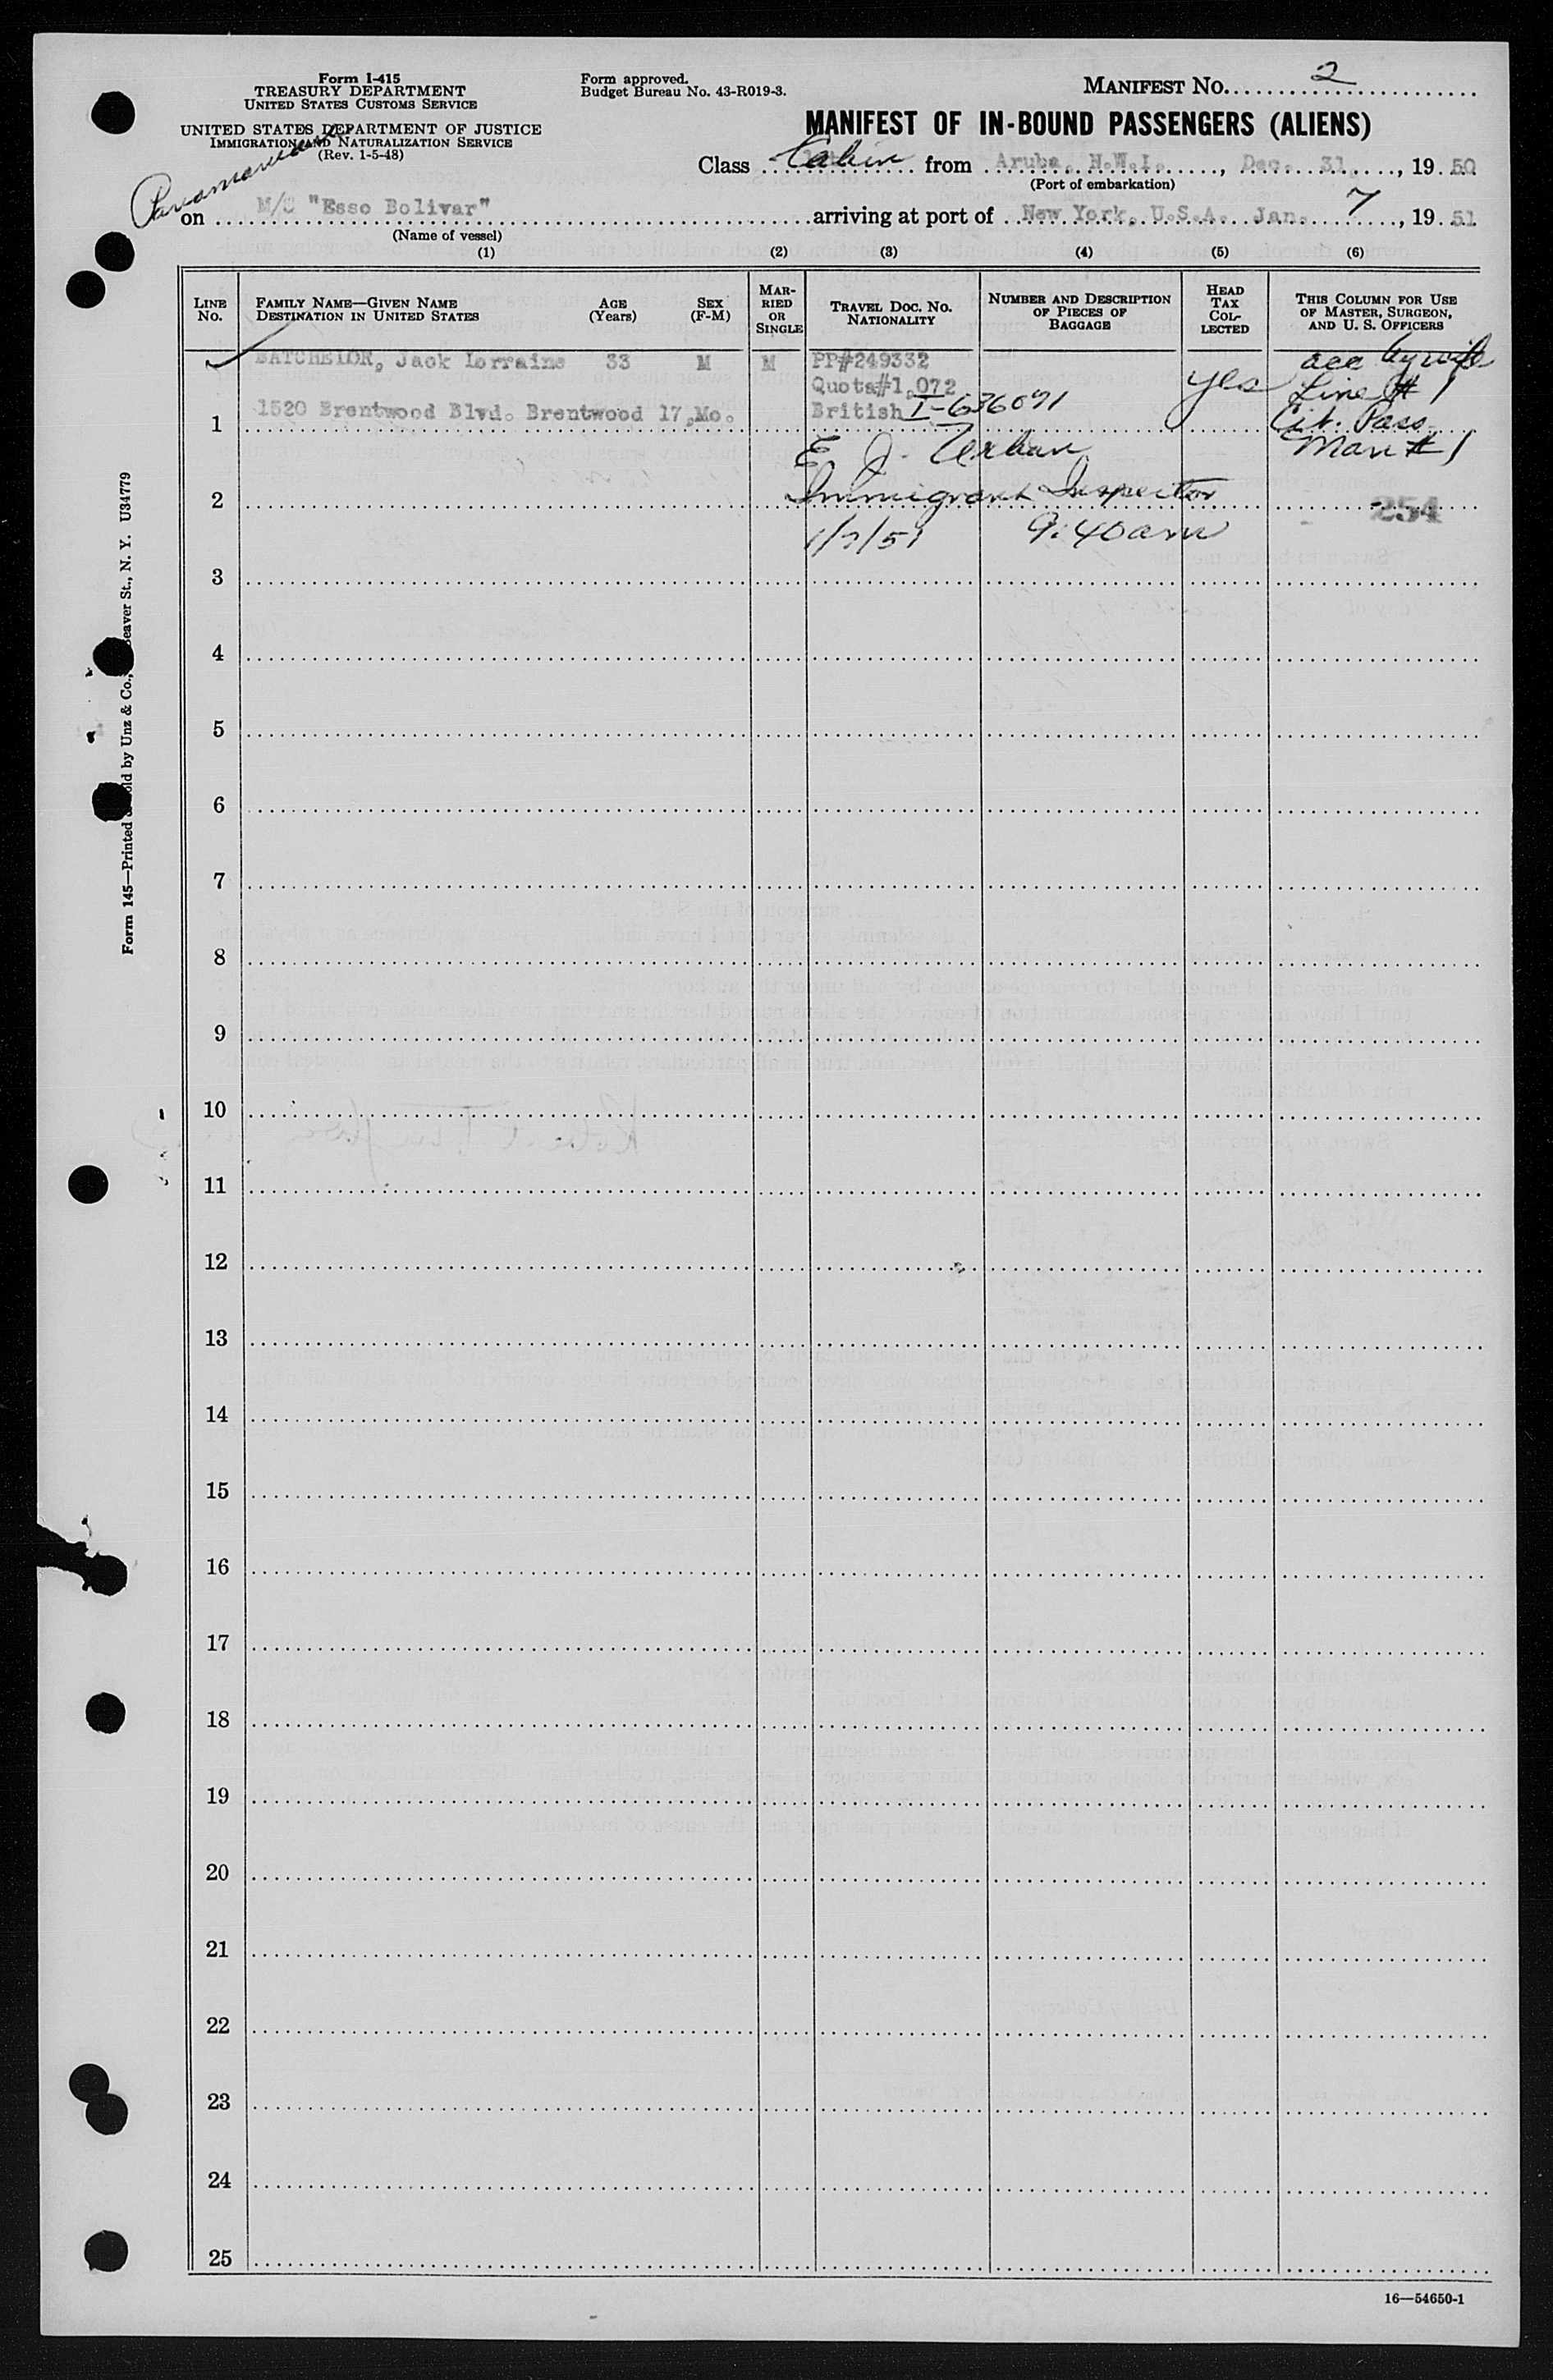 Form I-415
TREASURY DEPARTMENT
UNITED STATES CUSTOMS SERVICE
UNITED STATES DEPARTMENT OF JUSTICE
IMMIGRATION AND NATURALIZATION SERVICE
(Rev. 1-5-48)
Form approved.
Budget Bureau No. 43-R019-3.
MANIFEST No. 2
MANIFEST OF IN-BOUND PASSENGERS (ALIENS)
Class Cabin from Aruba, N.W.I., Dec. 31, 1950
(Port of embarkation)
Panamanian
on M/S "Esso Bolivar" arriving at port of New York, U.S.A. Jan. 7, 1951
(Name of vessel)
(1) (2) (3) (4) (5) (6)
LINE No.
FAMILY NAME—GIVEN NAME
DESTINATION IN UNITED STATES
AGE (Years)
SEX (F-M)
MARRIED OR SINGLE
TRAVEL DOC. NO.
NATIONALITY
NUMBER AND DESCRIPTION OF PIECES OF BAGGAGE
HEAD TAX COLLECTED
THIS COLUMN FOR USE OF MASTER, SURGEON, AND U. S. OFFICERS
BATCHELOR, Jack Lorraine 33 M M PP#249332
Quota#1,072
1520 Brentwood Blvd. Brentwood 17,Mo. British I-636091
yes
acc by wife
Line # 1
Cit. Pass.
Man # 1
1
E J. Urban
2 Immigrant Inspector
254
1/7/51 9:40am
3
4
5
6
7
8
9
10
11
12
13
14
15
16
17
18
19
20
21
22
23
24
25
16—54650-1
Form 145—Printed Sold by Unz & Co., Beaver St., N. Y. U34779